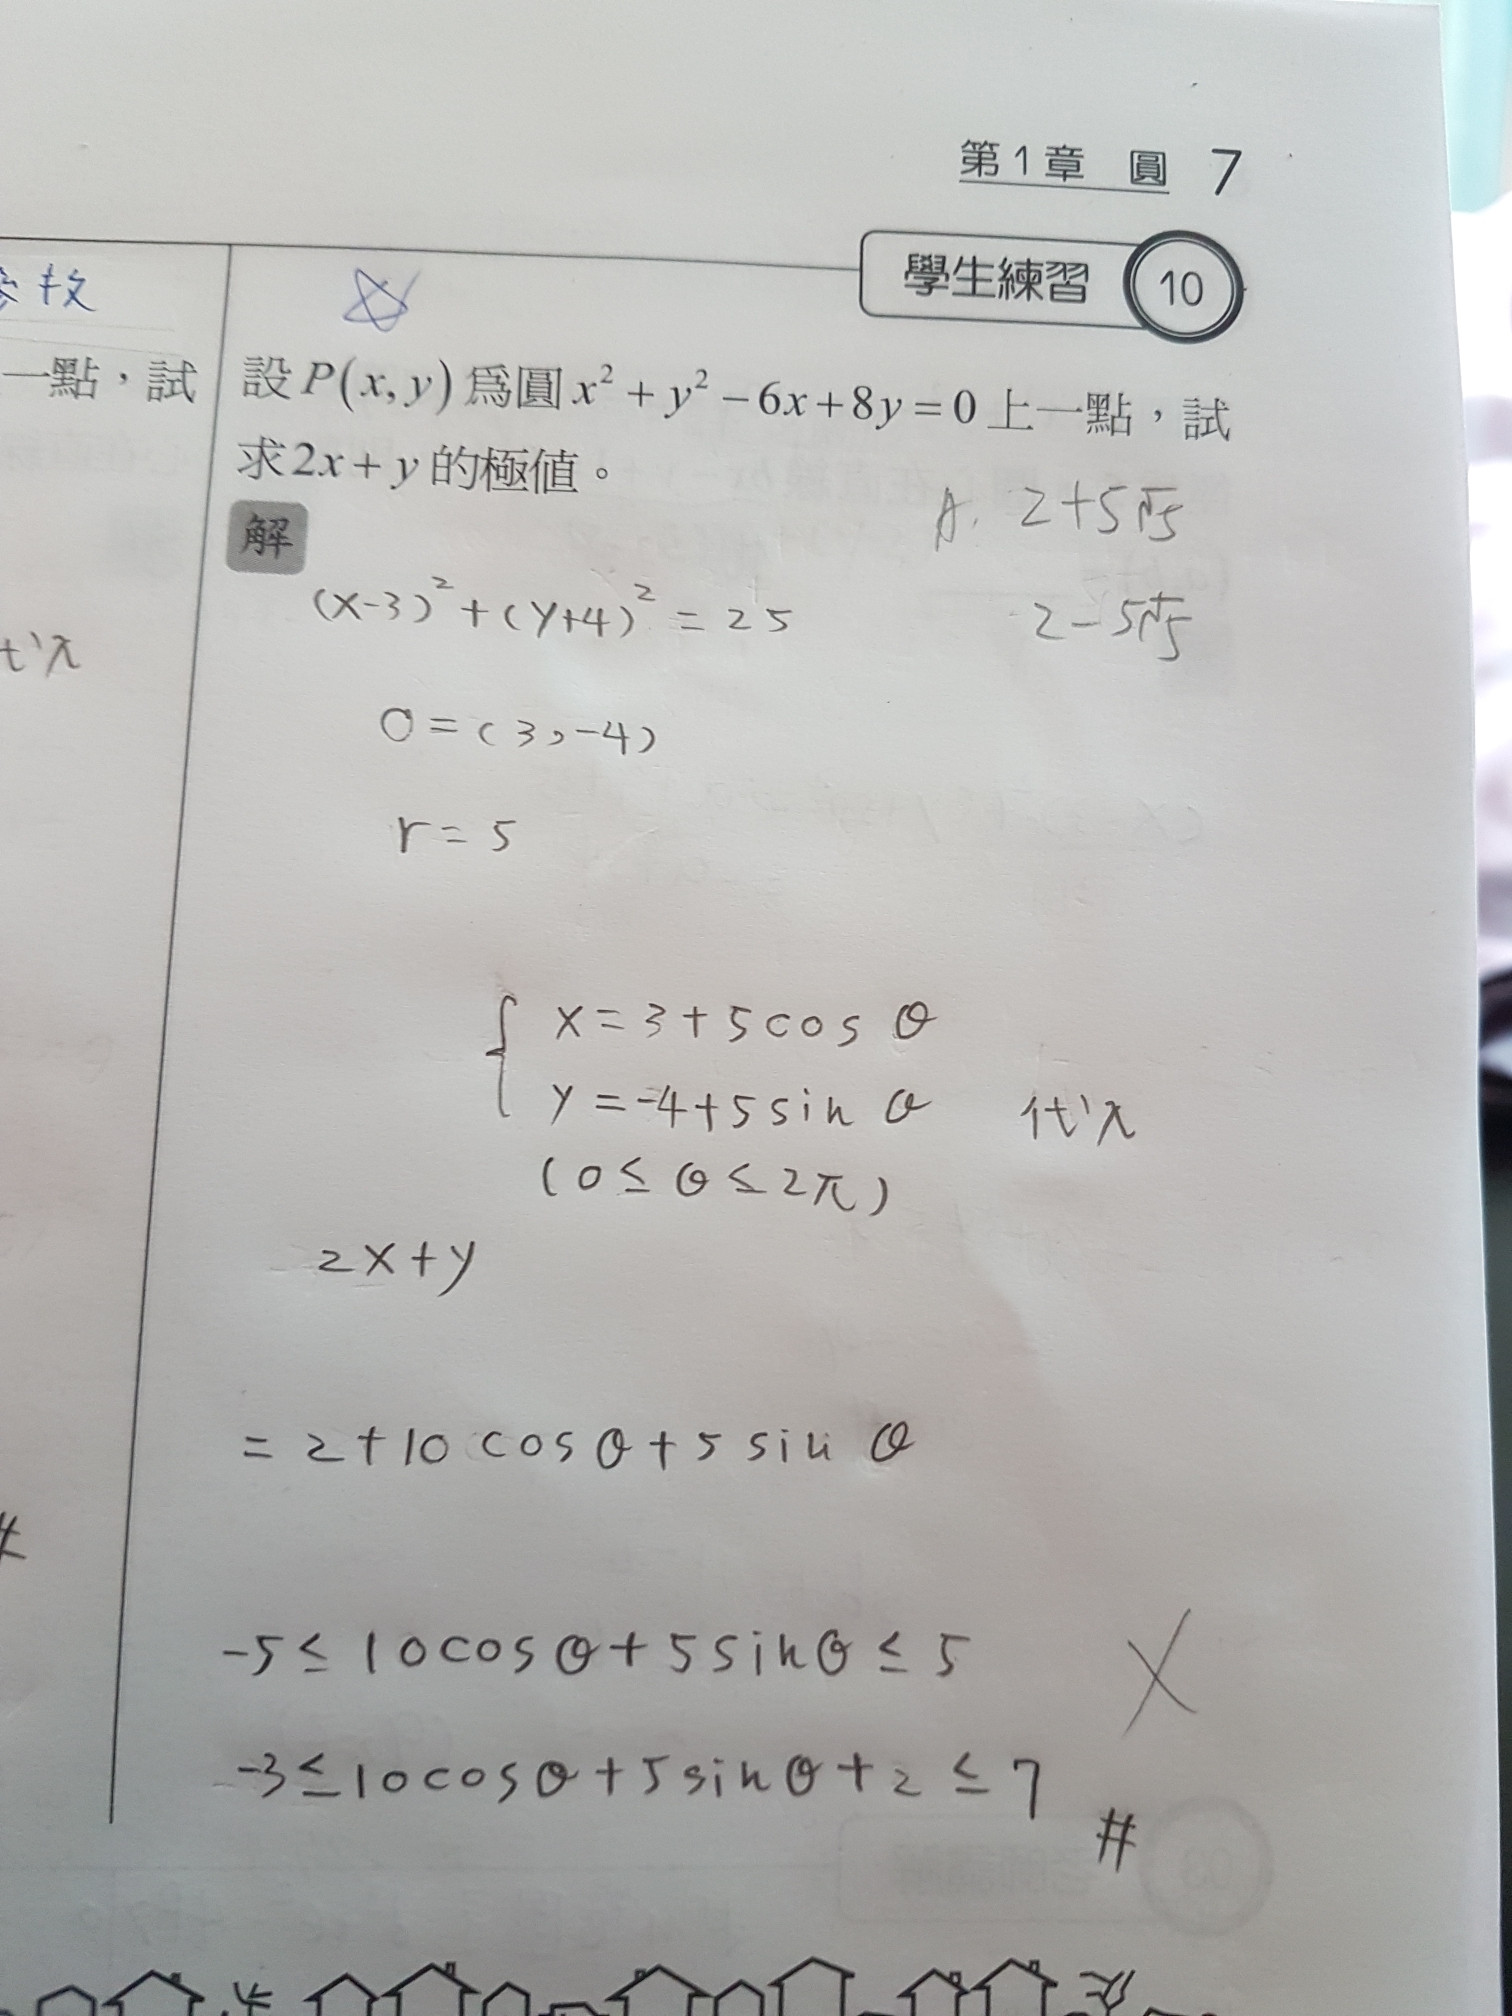 第1章 圓 7
學生練習 10
一點，試
設P(x,y)為圓x²+y²-6x+8y=0上一點，試
求2x+y的極值。
A. 2+5√5
2-5√5
解
(x-3)²+(y+4)²=25
代入
O=(3,-4)
r=5
x=3+5cosθ
y=-4+5sinθ 代入
(0≤θ≤2π)
2x+y
=2+10cosθ+5sinθ
-5≤10cosθ+5sinθ≤5
-3≤10cosθ+5sinθ+2≤7 #